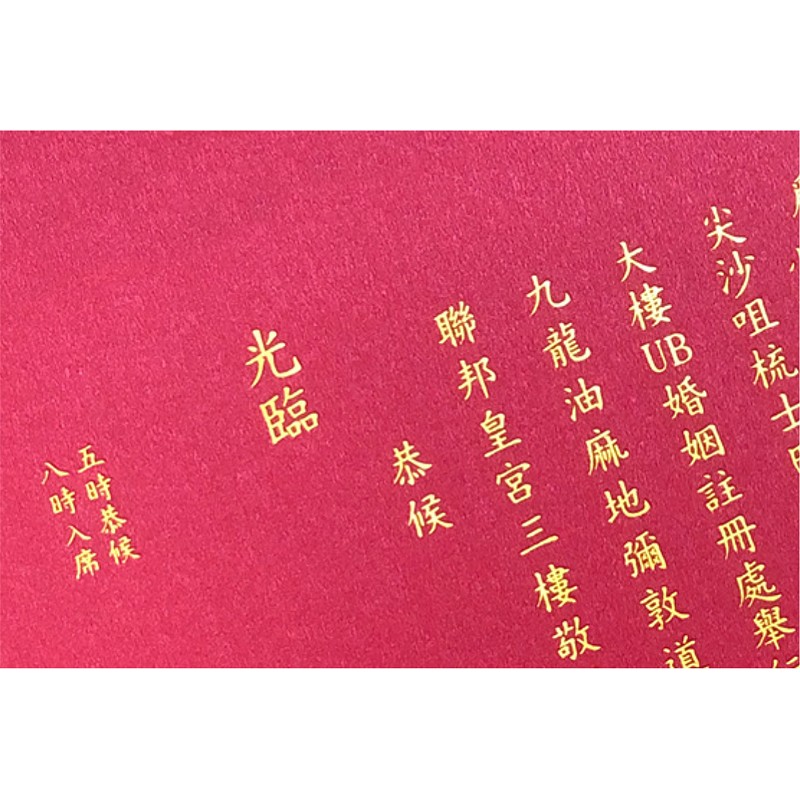 尖沙咀梳士
大樓UB婚姻註冊處舉
九龍油麻地彌敦道
聯邦皇宮三樓敬
恭候
光臨
五時恭候
八時入席